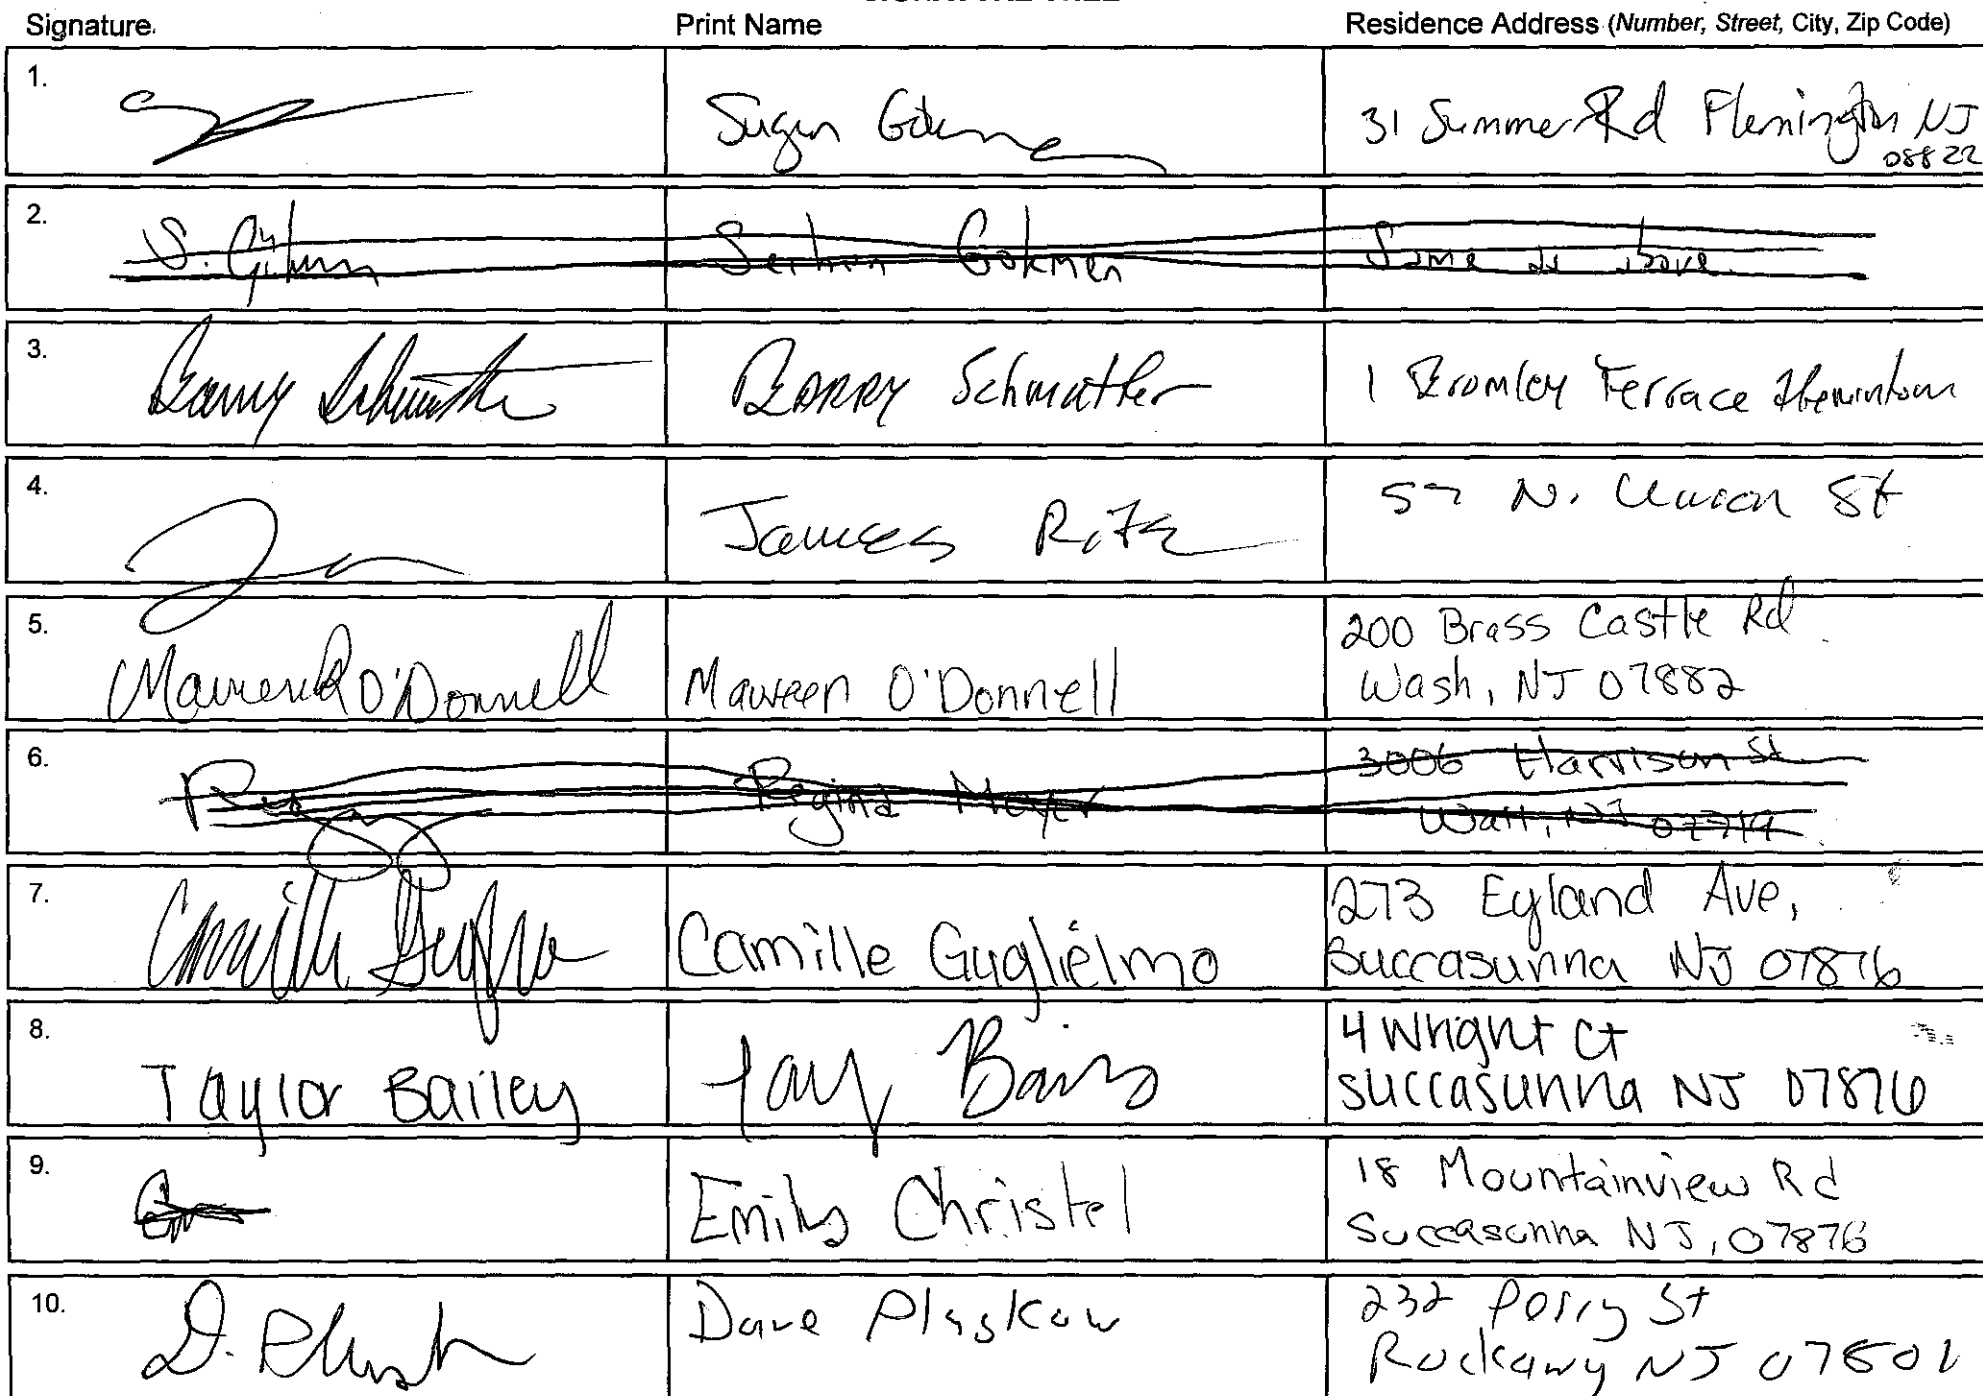 Signature
Print Name
Residence Address (Number, Street, City, Zip Code)
1.
31 Summer Rd Flemington NJ
08822
2.
S.
Gokmen
Same as above
3.
Barry
BARRY Schmatler
1 Bromley Terrace
4.
James Ritz
N. St
5.
Maureen O'Donnell
Maureen O'Donnell
200 Brass Castle Rd.
Wash, NJ 07882
6.
Regina Meyer
3006 Harrison St.
Wall, NJ 07719
7.
Camille
Camille Guglielmo
273 Eyland Ave,
Succasunna NJ 07876
8.
Taylor Bailey
4 Wright Ct
Succasunna NJ 07876
9.
Emily Christel
18 Mountainview Rd
Succasunna NJ, 07876
10.
D.
Dave Plaskow
232 Perry St
Rockawy NJ 07801